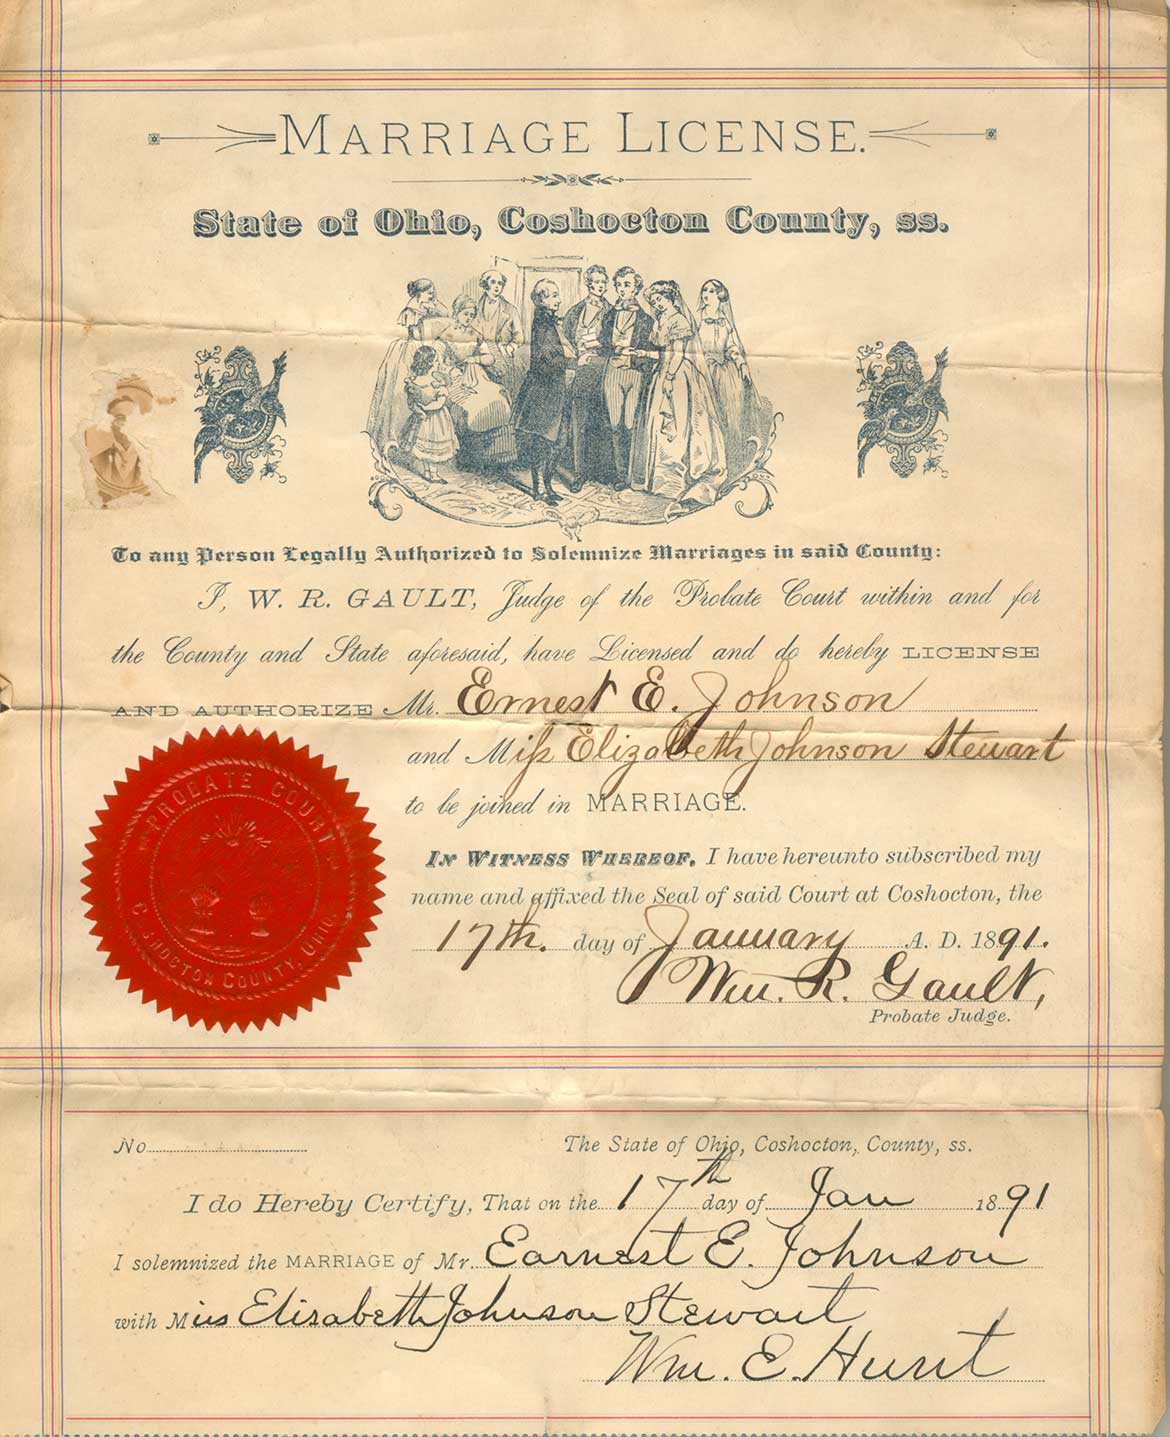 MARRIAGE LICENSE.
State of Ohio, Coshocton County, ss.
To any Person Legally Authorized to Solemnize Marriages in said County:
I, W. R. GAULT, Judge of the Probate Court within and for
the County and State aforesaid, have Licensed and do hereby LICENSE
AND AUTHORIZE Mr. Ernest E. Johnson
and Miss Elizabeth Johnson Stewart
to be joined in MARRIAGE.
IN WITNESS WHEREOF, I have hereunto subscribed my
name and affixed the Seal of said Court at Coshocton, the
17th. day of January A. D. 1891.
Wm. R. Gault,
Probate Judge.
PROBATE COURT
COSHOCTON COUNTY, OHIO
No
The State of Ohio, Coshocton, County, ss.
I do Hereby Certify, That on the 17th day of Jan 1891
I solemnized the MARRIAGE of Mr. Earnest E. Johnson
with Miss Elisabeth Johnson Stewart
Wm. E. Hunt